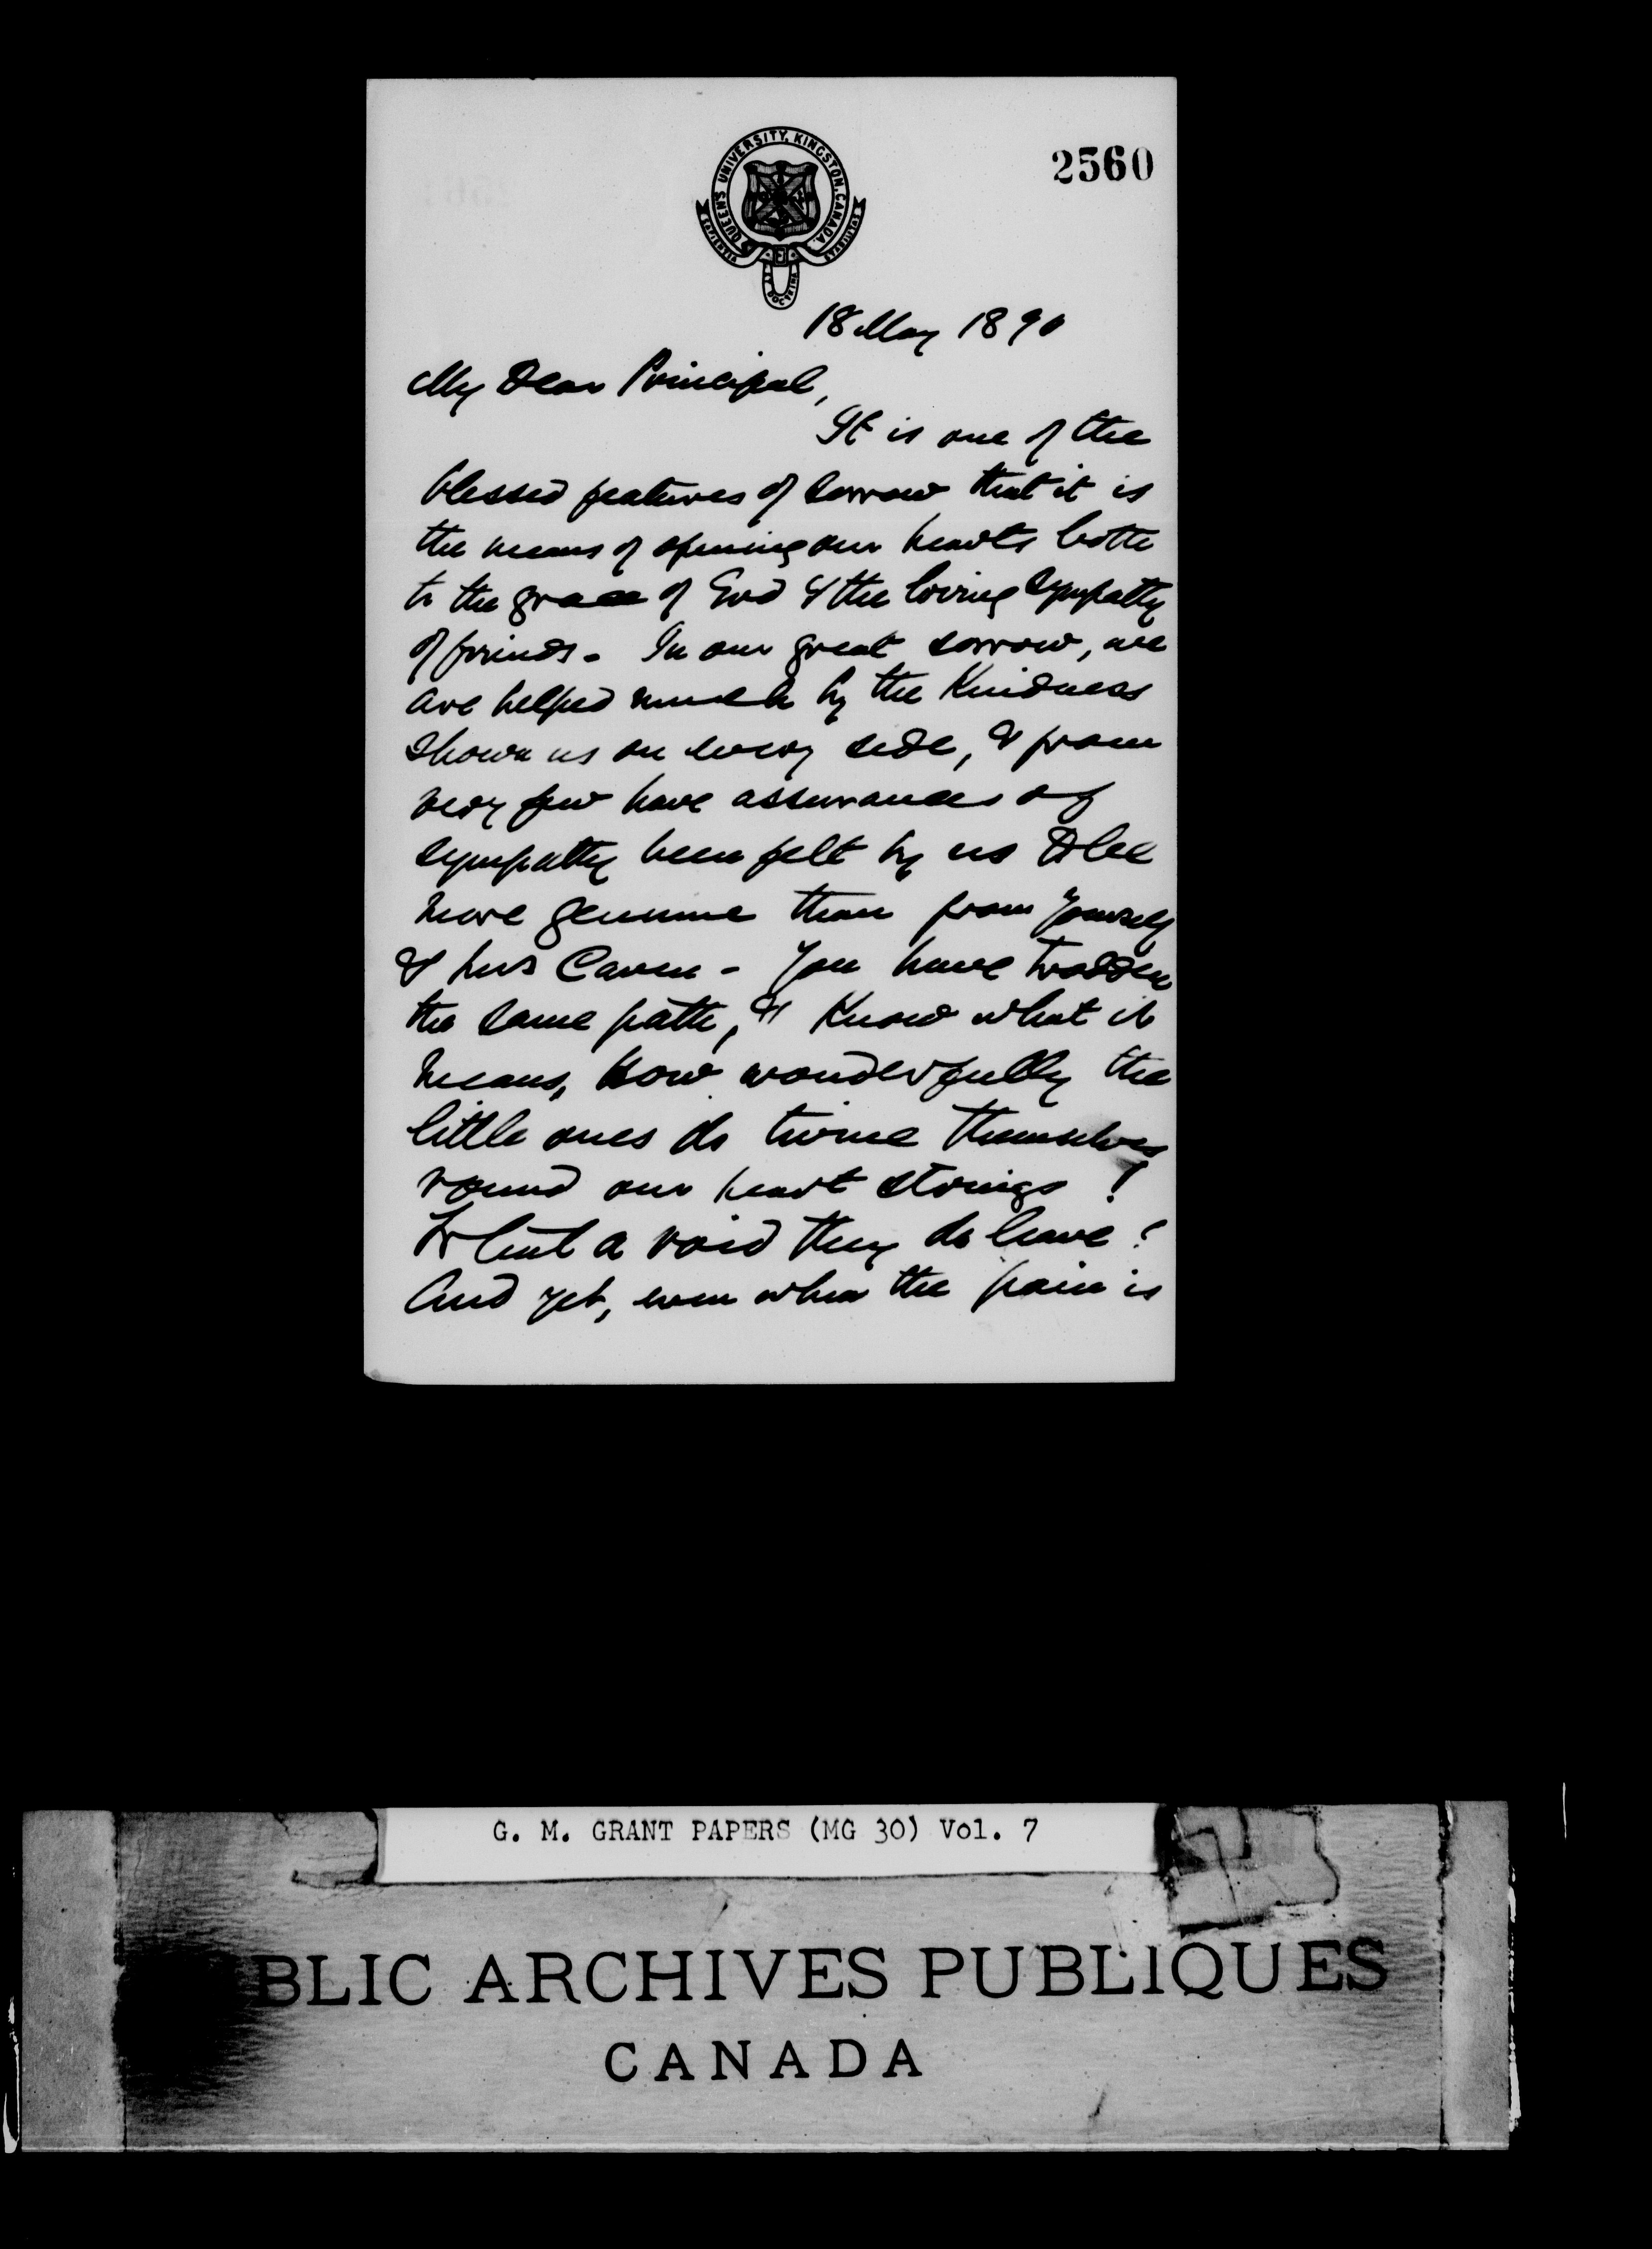 2560
QUEEN'S UNIVERSITY, KINGSTON, CANADA.
SAPIENTIA ET DOCTRINA STABILITAS
18 May 1890
My Dear Principal,
It is one of the
blessed features of sorrow that it is
the means of opening our hearts both
to the grace of God & the loving sympathy
of friends. In our great sorrow, we
are helped much by the kindness
shown us on every side, & from
very few have assurances of
sympathy been felt by us to be
more genuine than from yourself
& Mrs Caven - You have trodden
the same path, & know what it
means, How wonderfully the
little ones do twine themselves
round our heart strings !
What a void they do leave !
And yet, even when the pain is
G. M. GRANT PAPERS (MG 30) Vol. 7
BLIC ARCHIVES PUBLIQUES
CANADA